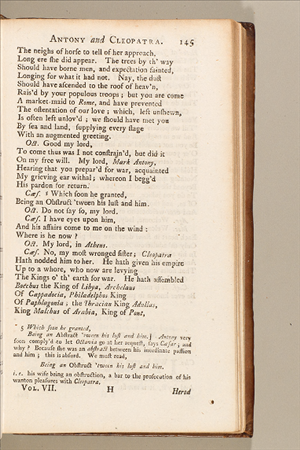 ANTONY and CLEOPATRA. 145
The neighs of horſe to tell of her approach,
Long ere ſhe did appear. The trees by th' way
Should have borne men, and expectation fainted,
Longing for what it had not. Nay, the duſt
Should have aſcended to the roof of heav'n,
Rais'd by your populous troops; but you are come
A market-maid to Rome, and have prevented
The oſtentation of our love; which, left unſhewn,
Is often left unlov'd; we ſhould have met you
By ſea and land, ſupplying every ſtage
With an augmented greeting.
Oct. Good my lord,
To come thus was I not conſtrain'd, but did it
On my free will. My lord, Mark Antony,
Hearing that you prepar'd for war, acquainted
My grieving ear withal; whereon I begg'd
His pardon for return.
Cæſ. 5 Which ſoon he granted,
Being an Obſtruct 'tween his luſt and him.
Oct. Do not ſay ſo, my lord.
Cæſ. I have eyes upon him,
And his affairs come to me on the wind:
Where is he now?
Oct. My lord, in Athens.
Cæſ. No, my moſt wronged ſiſter; Cleopatra
Hath nodded him to her. He hath given his empire
Up to a whore, who now are levying
The Kings o' th' earth for war. He hath aſſembled
Bocchus the King of Libya, Archelaus
Of Cappadocia, Philadelphos King
Of Paphlagonia; the Thracian King Adallas,
King Malchus of Arabia, King of Pont,
5 Which ſoon he granted,
Being an Abſtract 'tween his luſt and him.] Antony very
ſoon comply'd to let Octavia go at her requeſt, ſays Cæſar; and
why? Becauſe ſhe was an abſtract between his inordinate paſſion
and him; this is abſurd. We muſt read,
Being an Obſtruct 'tween his luſt and him.
i. e. his wife being an obſtruction, a bar to the proſecution of his
wanton pleaſures with Cleopatra.
VOL. VII. H Herod